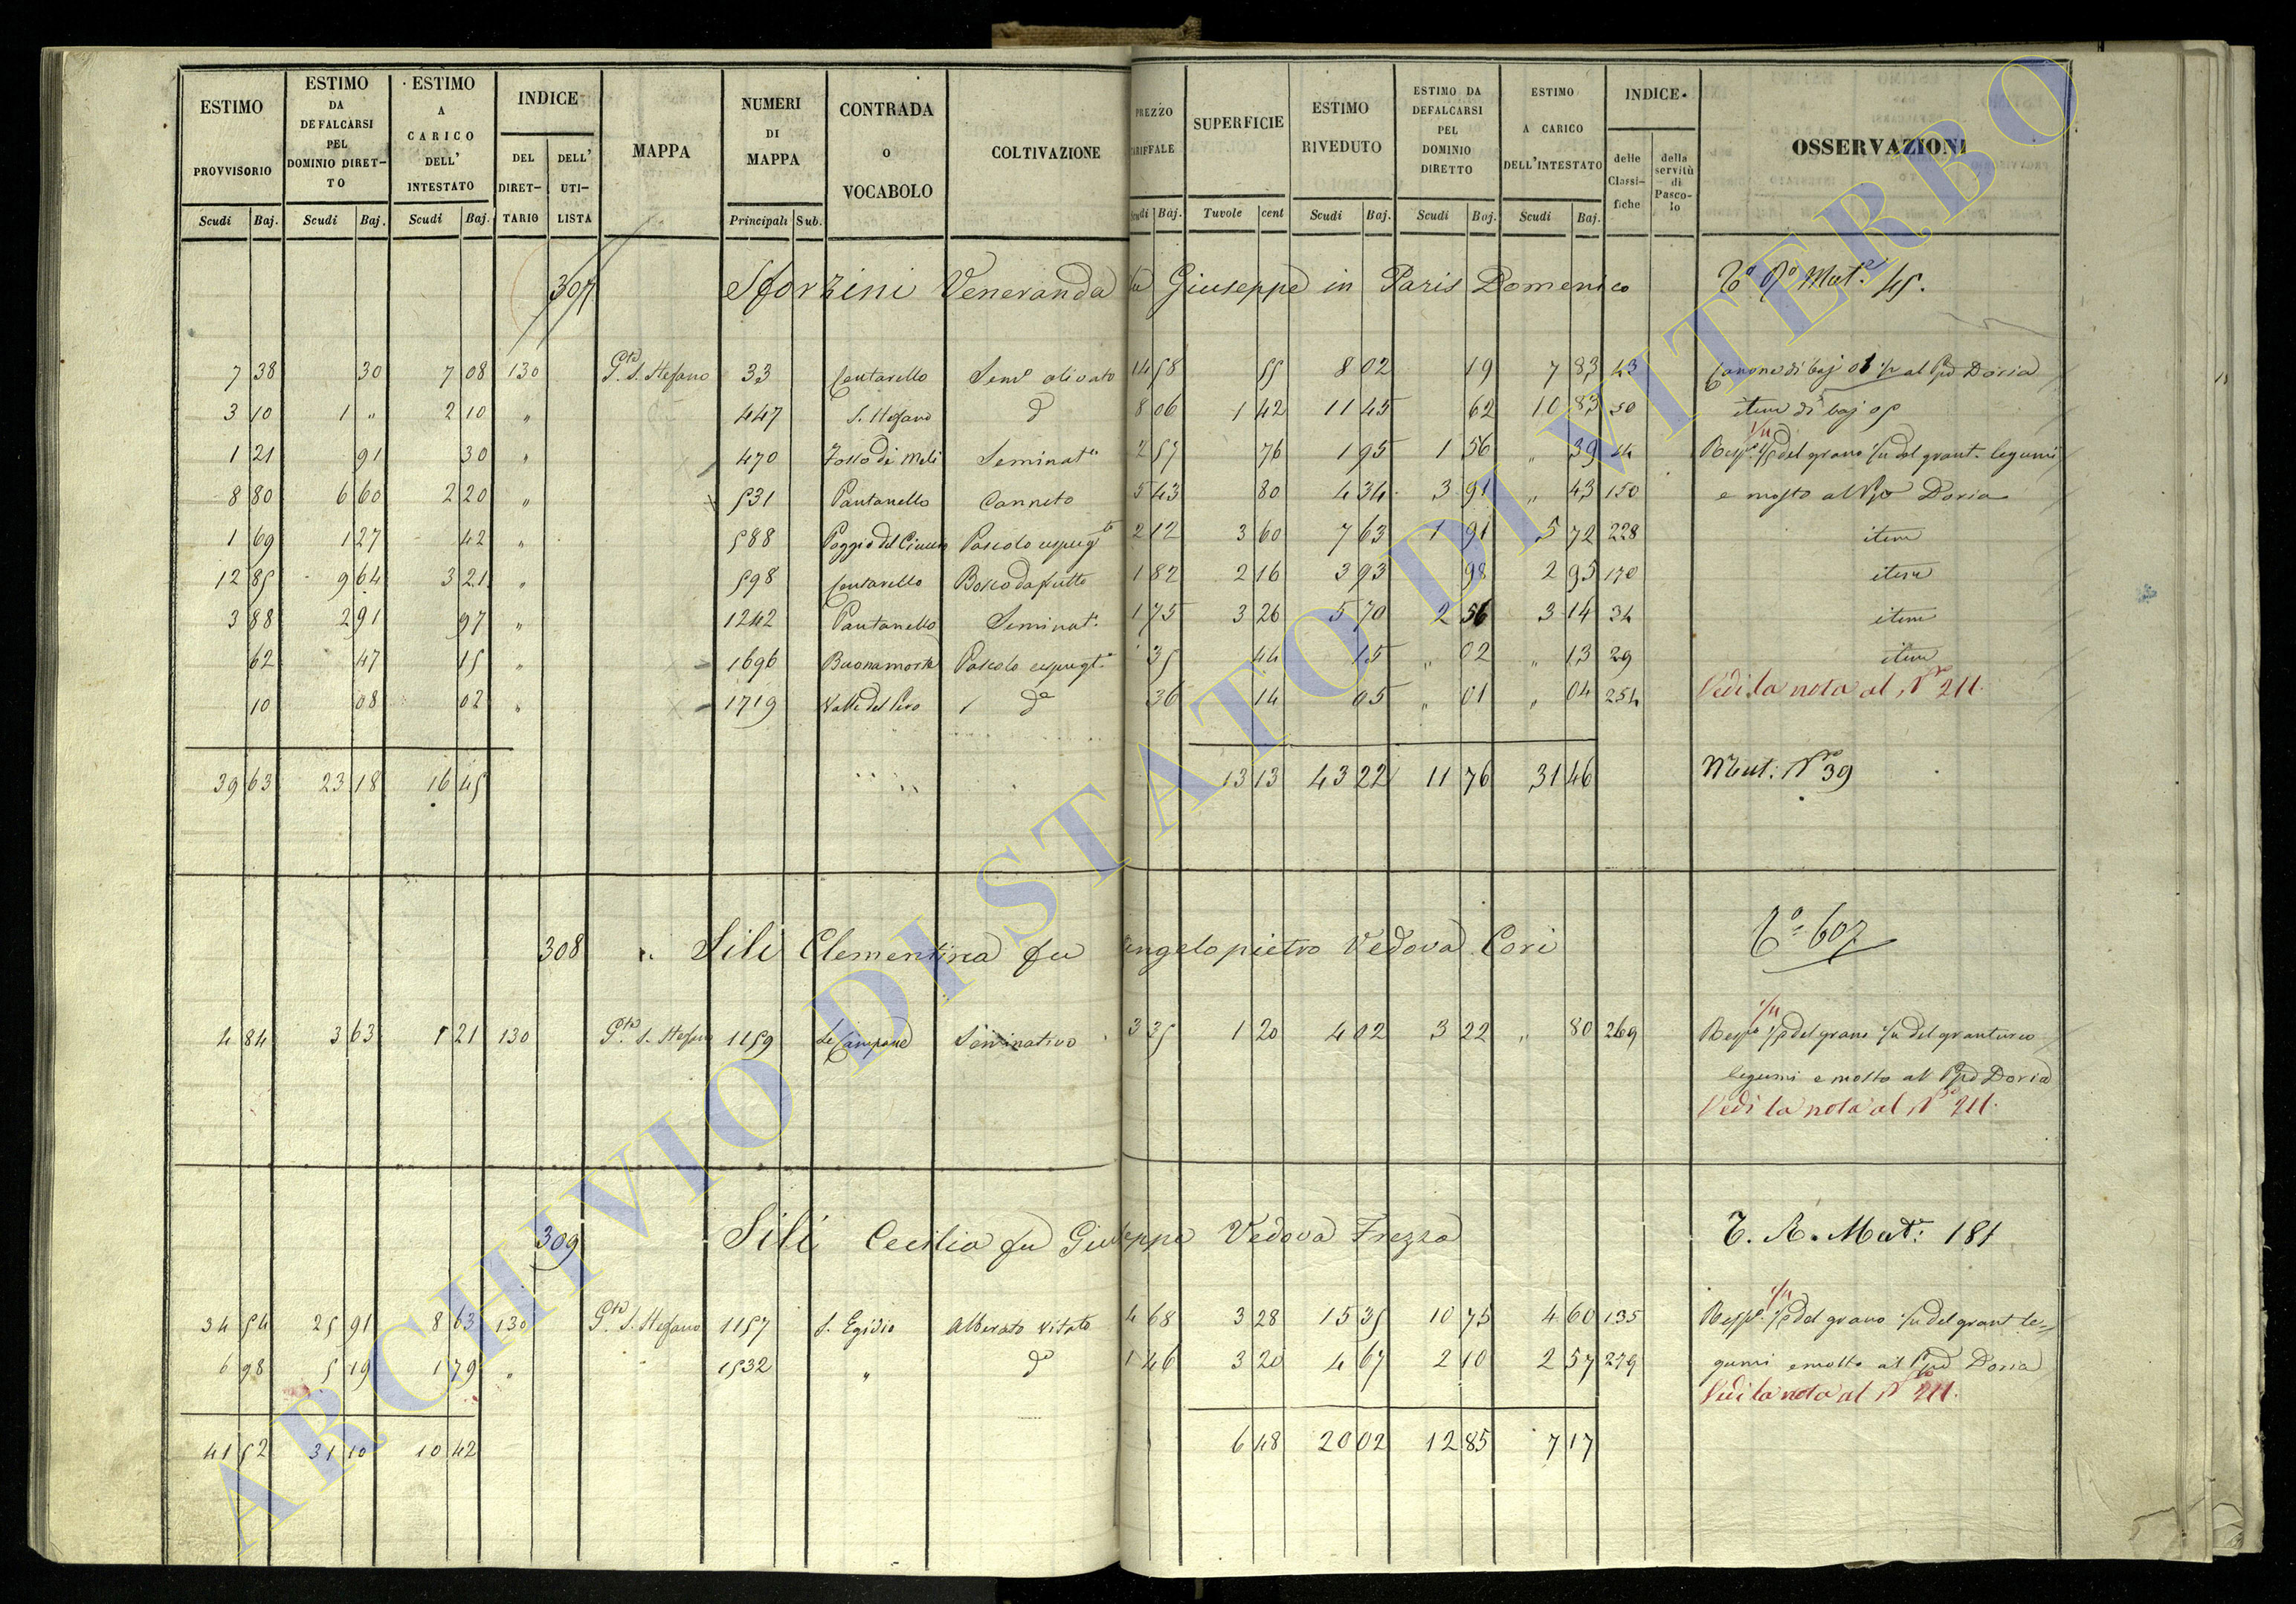 ESTIMO PROVVISORIO Scudi Baj.
ESTIMO DA DEFALCARSI PEL DOMINIO DIRET-TO Scudi Baj.
ESTIMO A CARICO DELL' INTESTATO Scudi Baj.
INDICE DEL DIRET-TARIO DELL' UTI-LISTA
MAPPA
NUMERI DI MAPPA Principali Sub.
CONTRADA o VOCABOLO
COLTIVAZIONE
PREZZO TARIFFALE Scudi Baj.
SUPERFICIE Tavole cent
ESTIMO RIVEDUTO Scudi Baj.
ESTIMO DA DEFALCARSI PEL DOMINIO DIRETTO Scudi Baj.
ESTIMO A CARICO DELL'INTESTATO Scudi Baj.
INDICE delle Classi-fiche della servitù di Pasco-lo
OSSERVAZIONI
307 Sforzini Veneranda fu Giuseppe in Paris Domenico Mut.e 45.
7 38 30 7 08 130 P.to S. Stefano 33 Contarello Sem.o olivato 14 58 55 8 02 19 7 83 43 Canone di baj 01 al Ppe Doria
3 10 1 " 2 10 " 447 S. Stefano d.o 8 06 1 42 11 45 62 10 83 50 item di baj 05
1 21 91 30 " 470 Fosso di Meli Seminat.o 2 57 76 1 95 1 56 " 39 44 Resp.e 1/5 del grano 1/4 del grant. legumi
8 80 6 60 2 20 " 531 Pantanello Canneto 5 43 80 4 34 3 91 " 43 150 e mosto al Ppe Doria
1 69 1 27 42 " 588 Poggio del Cimero Pascolo cespugto 2 12 3 60 7 63 1 91 5 72 228 item
12 85 9 64 3 21 " 598 Contarello Bosco da frutto 1 82 2 16 3 93 98 2 95 170 item
3 88 2 91 97 " 1242 Pantanello Seminat.o 1 75 3 26 5 70 2 56 3 14 34 item
62 47 15 " 1696 Buonamorte Pascolo cespugt.o 35 44 15 " 02 " 13 29 item
10 08 02 " 1719 Valle del Pero d.o 36 14 05 " 01 " 04 254 Vedi la nota al No 211.
39 63 23 18 16 45 13 13 43 22 11 76 31 46 Mut: No 39
308 Sili Clementina fu Angelopietro Vedova Cori 607
4 84 3 63 1 21 130 P.to S. Stefano 1159 Le Campane Seminativo 3 35 1 20 4 02 3 22 " 80 269 Resp.e 1/5 del grano 1/4 del granturco
legumi e mosto al Ppe Doria
Vedi la nota al No 211.
309 Sili Cecilia fu Giuseppe Vedova Frezza T. A. Mut.e 181
34 54 25 91 8 63 130 P.to S. Stefano 1157 S. Egidio Alberato vitato 4 68 3 28 15 35 10 75 4 60 135 Resp.e 1/5 del grano 1/4 del grant le=
6 98 5 19 1 79 " 1532 " d.o 1 46 3 20 4 67 2 10 2 57 279 gumi e mosto al Ppe Doria
Vedi la nota al No 211.
41 52 31 10 10 42 6 48 20 02 12 85 7 17
ARCHIVIO DI STATO DI VITERBO